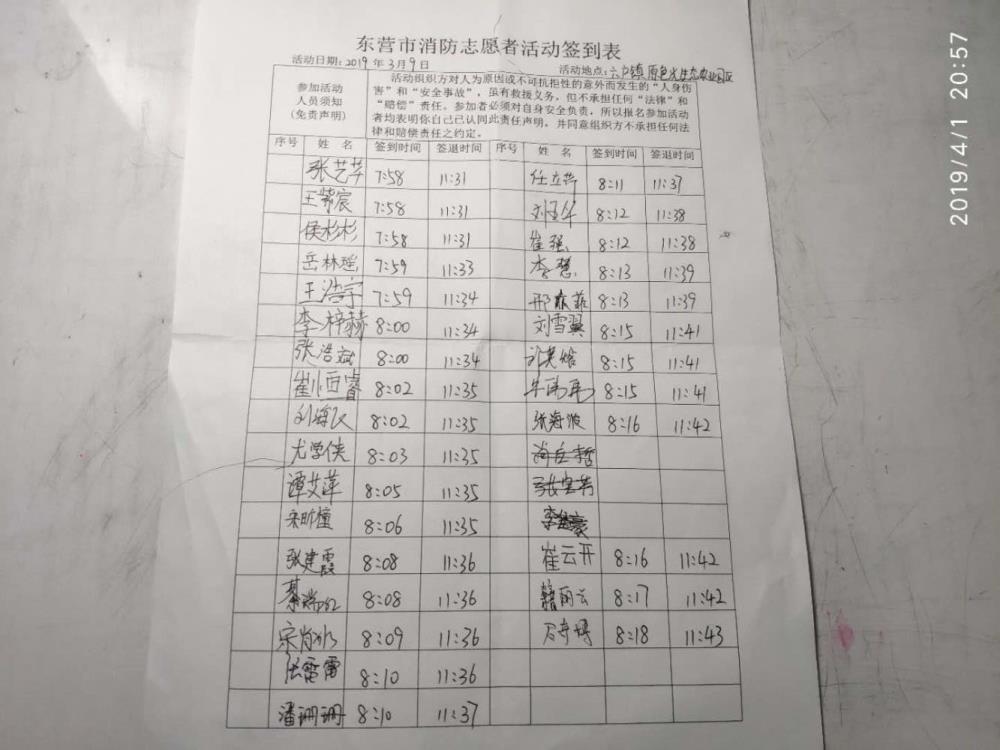 东营市消防志愿者活动签到表
活动日期:2019年3月9日 活动地点:六户镇
参加活动
人员须知
(免责声明)
活动组织方对人为原因或不可抗拒性的意外而发生的“人身伤
害”和“安全事故”,虽有救援义务,但不承担任何“法律”和
“赔偿”责任。参加者必须对自身安全负责,所以报名参加活动
者均表明你自己已认同此责任声明,并同意组织方不承担任何法
律和赔偿责任之约定。
序号 姓 名 签到时间 签退时间 序号 姓 名 签到时间 签退时间
张艺华 7:58 11:31 8:11 11:37
王紫宸 7:58 11:31 8:12 11:38
侯杉杉 7:58 11:31 崔强 8:12 11:38
岳林瑶 7:59 11:33 李慧 8:13 11:39
王浩宇 7:59 11:34 8:13 11:39
李梓赫 8:00 11:34 刘雪翼 8:15 11:41
张浩斌 8:00 11:34 8:15 11:41
8:02 11:35 8:15 11:41
刘海民 8:02 11:35 张海波 8:16 11:42
8:03 11:35
谭艾萍 8:05 11:35
8:06 11:35
张建霞 8:08 11:36 崔云开 8:16 11:42
8:08 11:36 8:17 11:42
8:09 11:36 8:18 11:43
张雷雷 8:10 11:36
潘珊珊 8:10 11:37
2019/4/1 20:57